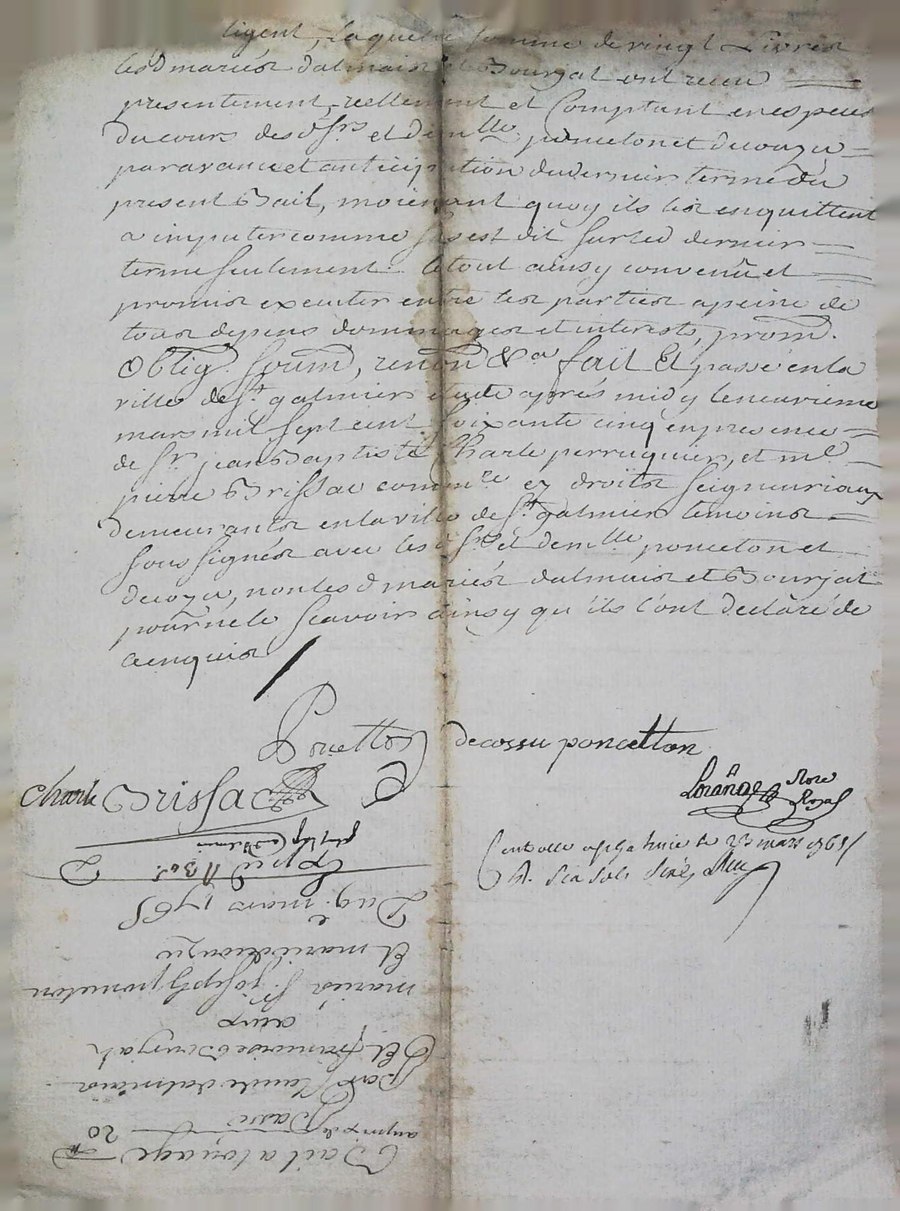 ligent, laquelle somme de vingt Livres
lesd mariés dalmais et Bourjat ont receu
presentement, reellement et Comptant en especes
du cours desd srs et demlle ponceton et decozu
par avance et anticipation du dernier terme du
present Bail, moienant quoy ils les enquittent
a imputer comme sus est dit sur led dernier
terme seulement. le tout ainsy convenû et
promis executer entre les parties a peine de
tous depens dommages et interests, prom.
Oblig. soum, renon &a fait Et passé en la
ville de St galmier etude après midy le neuvieme
mars mil sept cent soixante cinq en presence
de Sr jean Baptiste Charle perruquier, et me
pierre Brissac commre en droits seigneuriaux
demeurants en la ville de St galmier temoins
soussignés avec lesd srs et demlle ponceton et
decozu, non lesd mariés dalmais et Bourjat
pour ne le scavoir ainsy qu'ils l'ont declaré de
ce enquis
Poncetton decossu poncetton
Charle Brissac
Lorange Nore Royal
Controllé a St galmier le 23 mars 1765
R. six sols
Du 9e mars 1765
Et marie decozu
mariés Sr joseph ponceton
aux
Et francoise Bourjat
Par Claude dalmais
mariés
Bail a louage
au prix de 20 tt